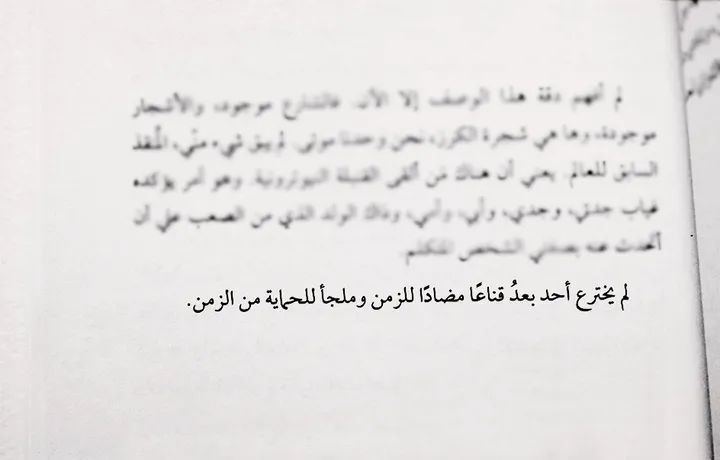 لم أفهم دقة هذا الوصف إلا الآن. فالشارع موجود، والأشجار
موجودة، وها هي شجرة الكرز، نحن وحدنا موتى. لم يبق شيء منّي، المنقذ
السابق للعالم. يعني أن هناك مَن ألقى القنبلة النيوترونية. وهو أمر يؤكده
غياب جدتي، وجدي، وأبي، وأمي، وذاك الولد الذي من الصعب علي أن
أتحدث عنه بصفتي الشخص المتكلم.
لم يخترع أحد بعدُ قناعًا مضادًا للزمن وملجأ للحماية من الزمن.